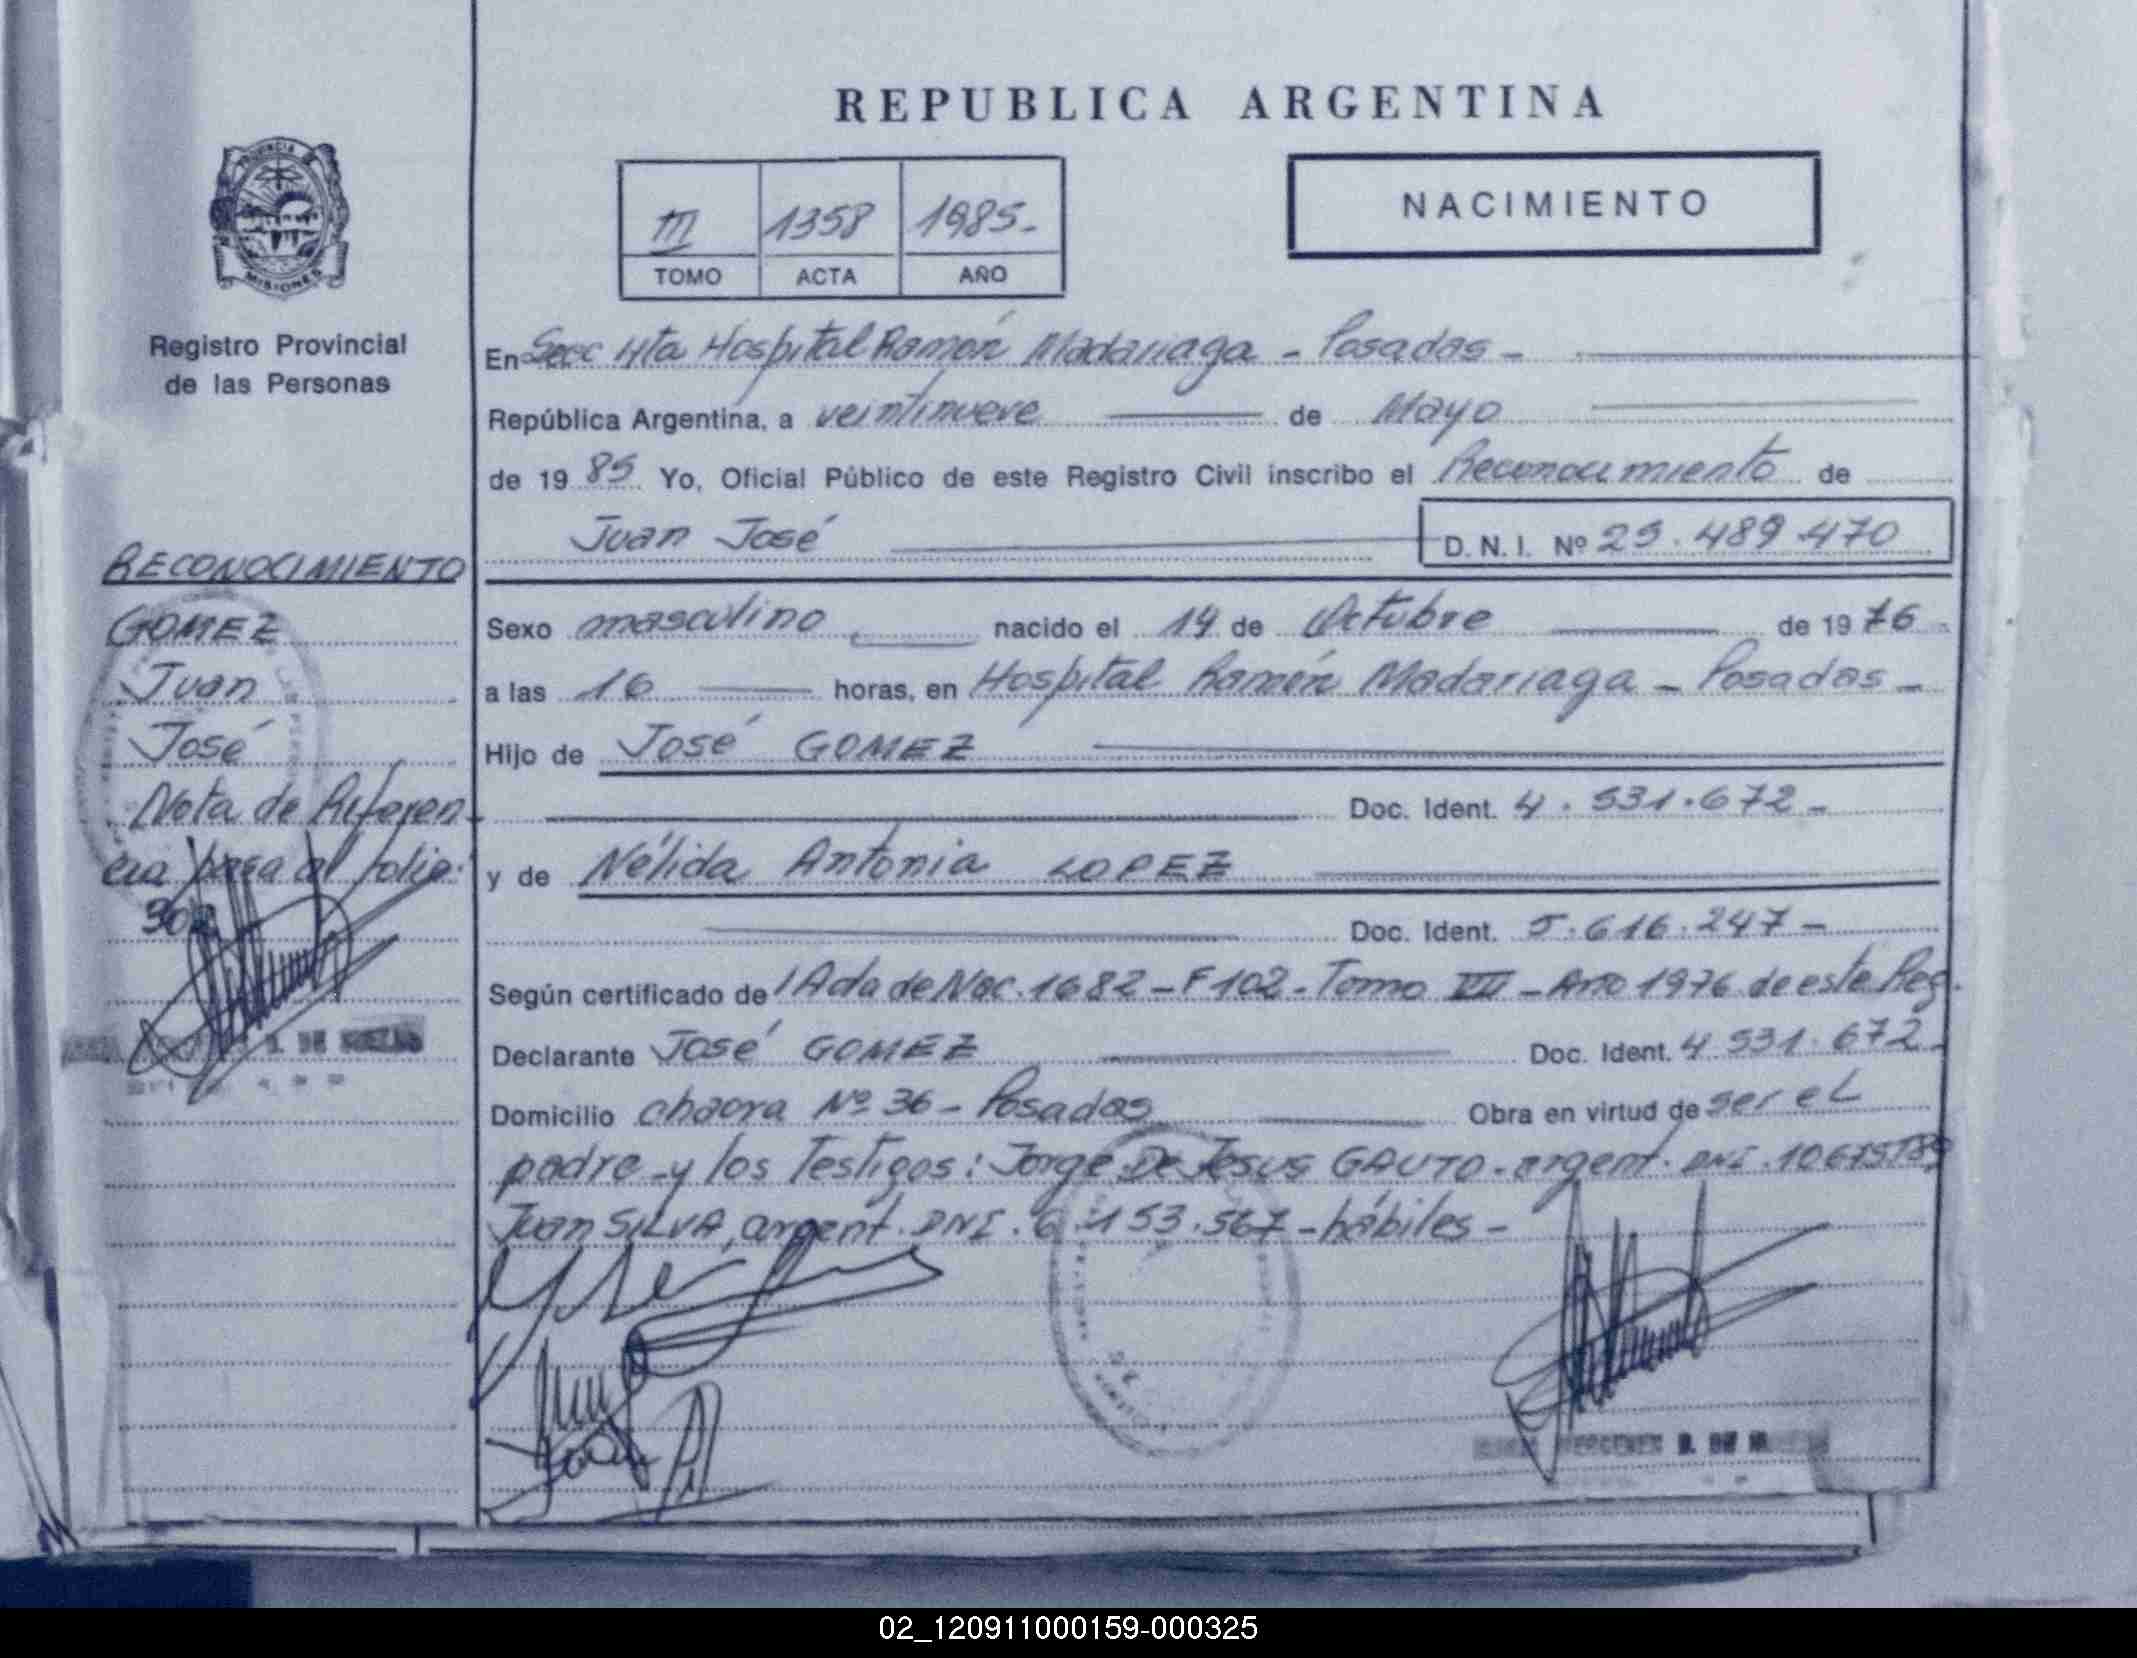 REPUBLICA ARGENTINA
III 1358 1985-
TOMO ACTA AÑO
NACIMIENTO
PROVINCIA DE
MISIONES
Registro Provincial
de las Personas
En Secc 4ta Hospital Ramón Madariaga - Posadas -
República Argentina, a veintinueve de Mayo
de 1985 Yo, Oficial Público de este Registro Civil inscribo el Reconocimiento de
Juan José D. N. I. Nº 25.489.470
RECONOCIMIENTO
GOMEZ
Juan
José
Nota de Referen-
cia pasa al folio:
302
Sexo masculino nacido el 14 de Octubre de 1976
a las 16 horas, en Hospital Ramón Madariaga - Posadas -
Hijo de José GOMEZ
Doc. Ident. 4.531.672-
y de Nélida Antonia LOPEZ
Doc. Ident. 5.616.247-
Según certificado de Acta de Nac. 1682 - F 102 - Tomo VII - Año 1976 de este Reg.
Declarante José GOMEZ Doc. Ident. 4.531.672-
Domicilio chacra Nº 36 - Posadas Obra en virtud de ser el
padre - y los Testigos: Jorge De Jesus GAUTO - argent. DNI.
Juan SILVA, argent. DNI. 6.153.567 - hábiles -
MERCEDES B. DE
02_120911000159-000325